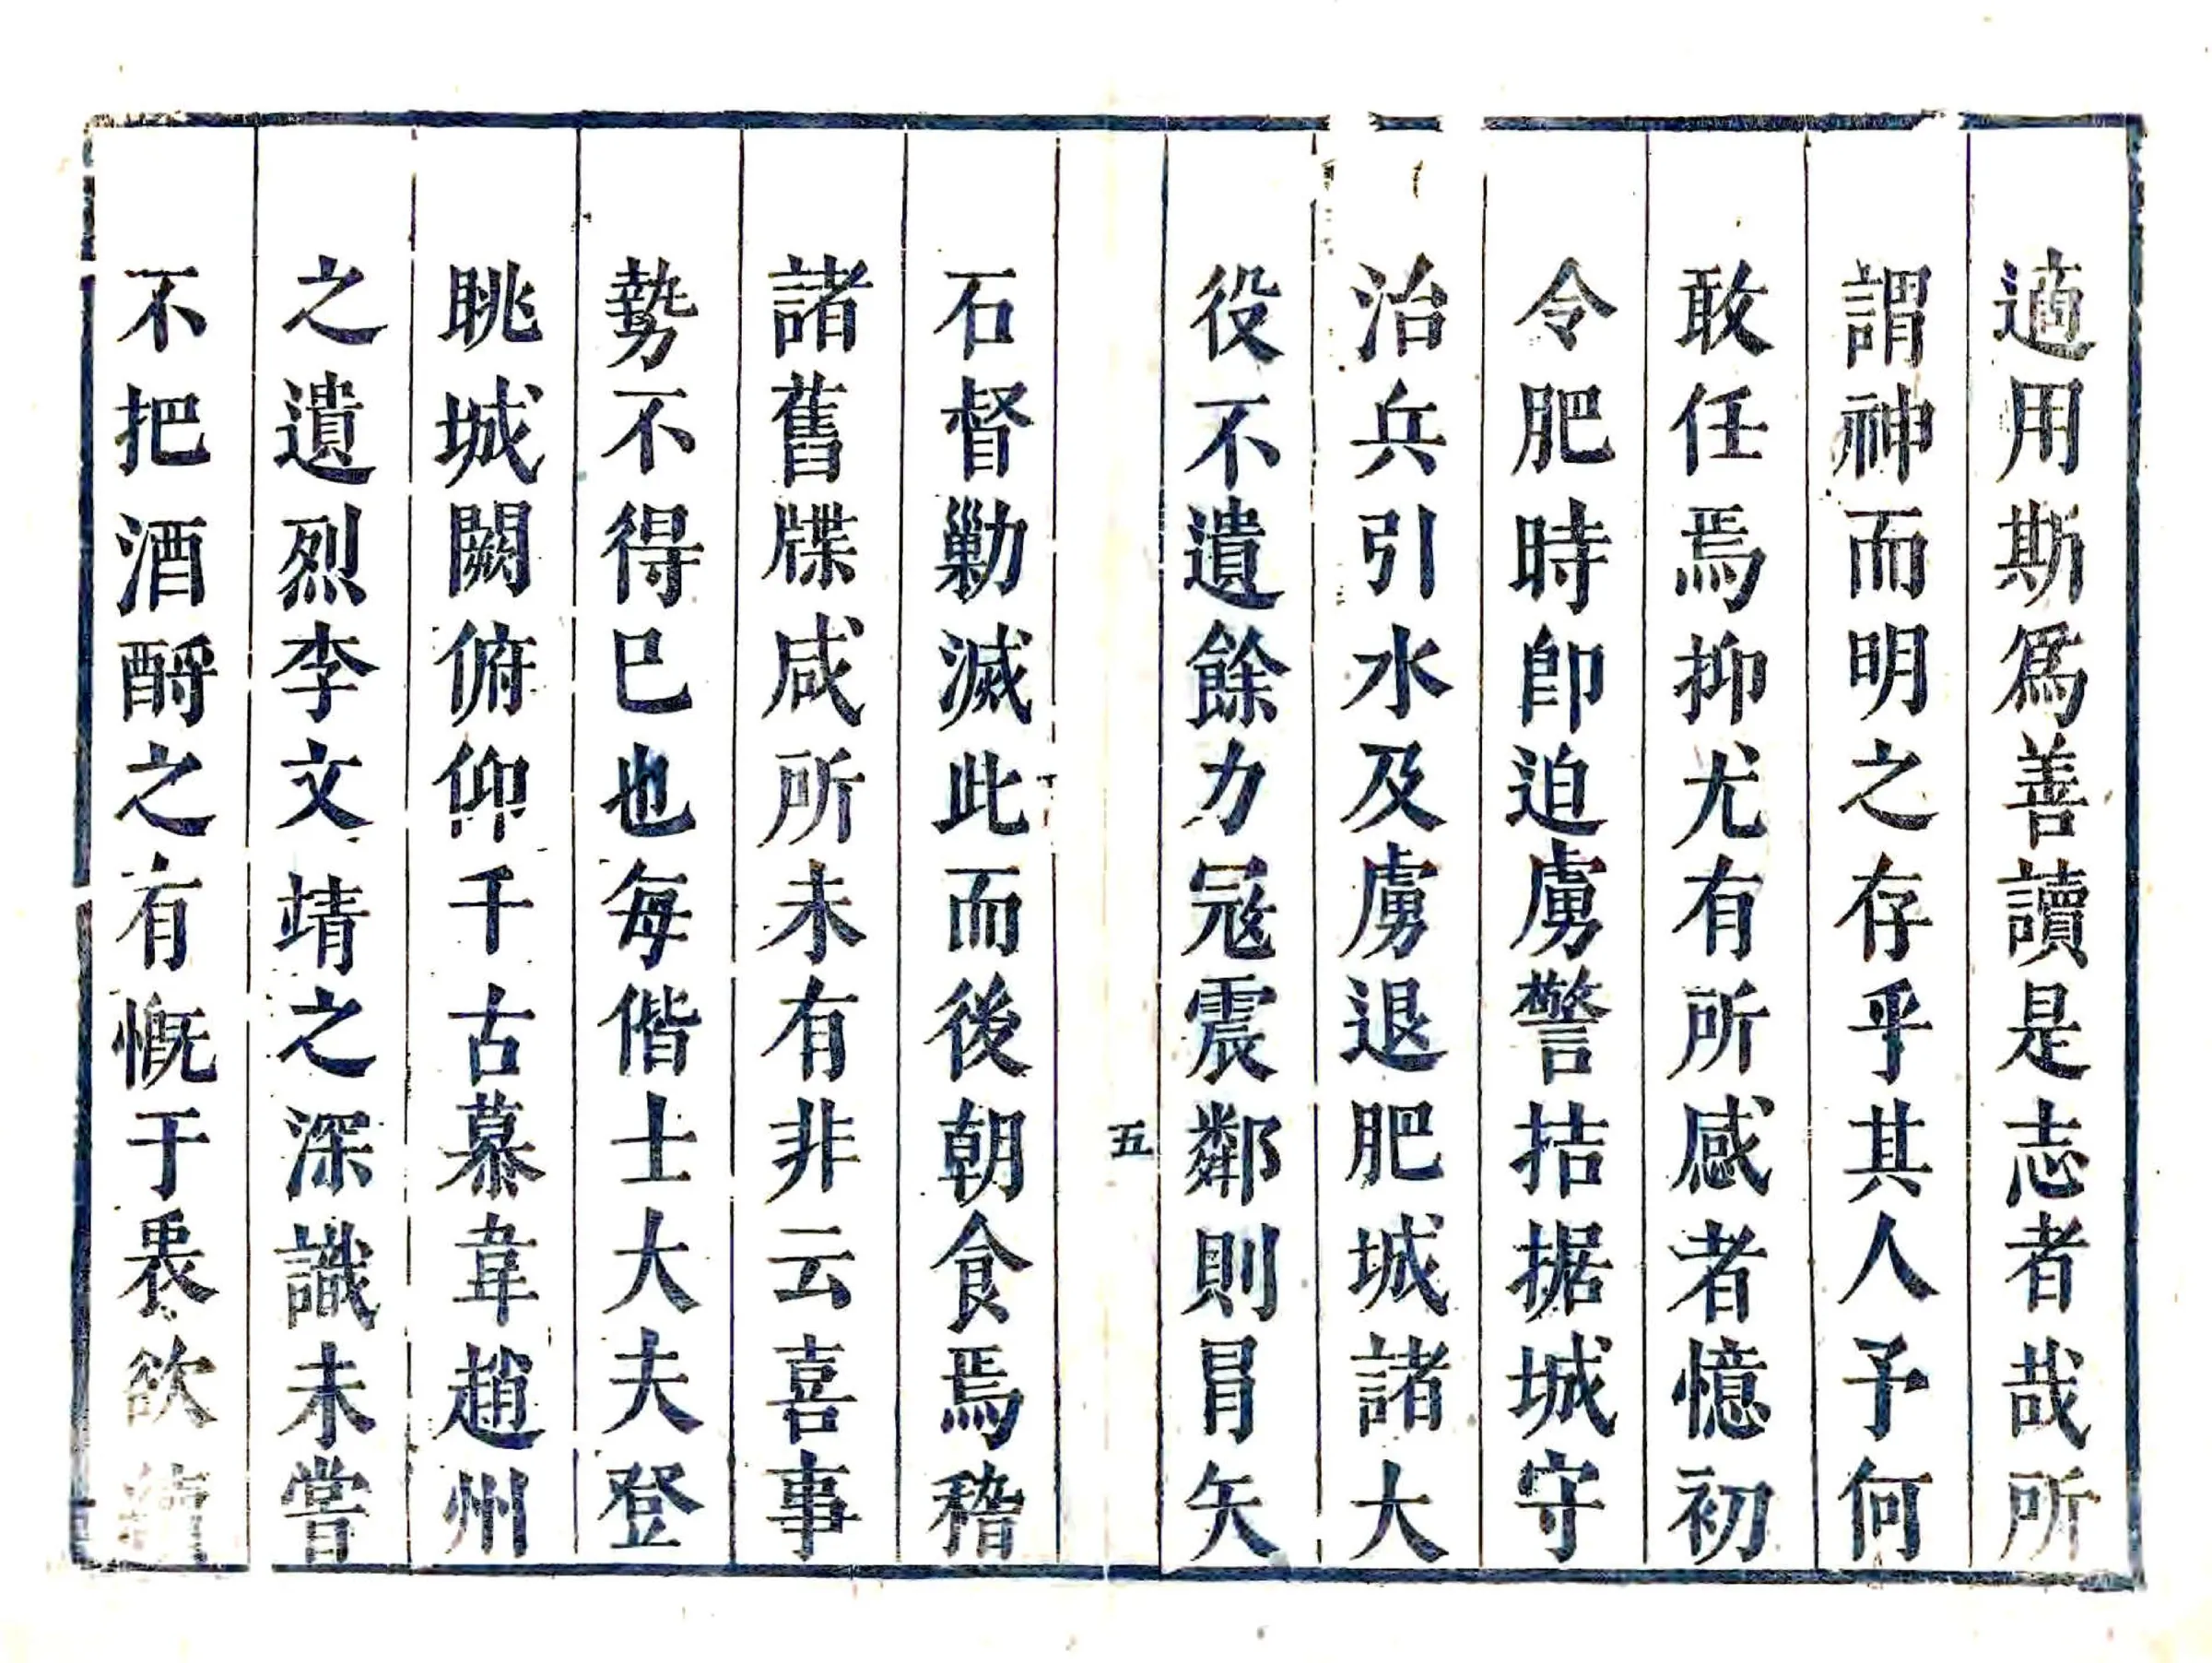 適用斯爲善讀是志者哉所
謂神而明之存乎其人予何
敢任焉抑尤有所感者憶初
令肥時卽迫虜警拮据城守
治兵引水及虜退肥城諸大
役不遺餘力冦震鄰則冐矢
五
石督勦滅此而後朝食焉稽
諸舊牒咸所未有非云喜事
勢不得巳也每偕士大夫登
眺城闕俯仰千古慕韋趙州
之遺烈李文靖之深識未嘗
不把酒酹之有慨于衷欲